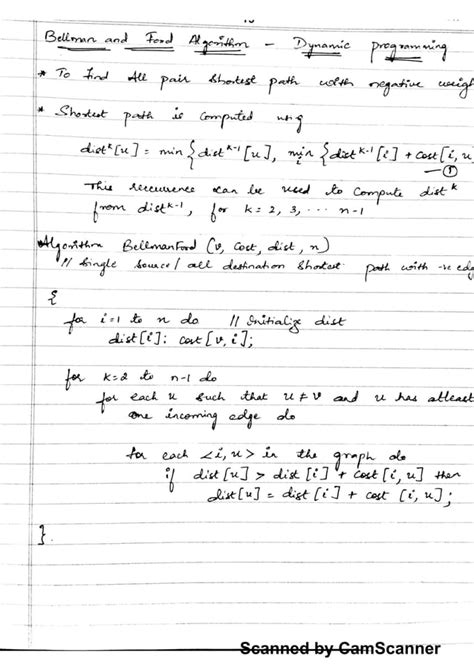 Bellman and Ford Algorithm - Dynamic programming
* To find All pair shortest path with negative weigh
* Shortest path is computed using
dist^k[u] = min { dist^k-1[u], min_i { dist^k-1[i] + cost[i, u
— ①
This reccurence can be used to compute dist^k
from dist^k-1, for k = 2, 3, ... n-1
Algorithm BellmanFord (v, cost, dist, n)
// Single source / all destination shortest path with -ve edg
{
for i=1 to n do // Initialize dist
dist[i]: cost[v, i];
for k=2 to n-1 do
for each u such that u ≠ v and u has atleast
one incoming edge do
for each <i, u> in the graph do
if dist[u] > dist[i] + cost[i, u] then
dist[u] = dist[i] + cost [i, u];
}.
Scanned by CamScanner